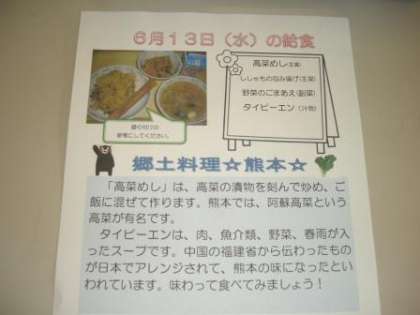 6月13日（水）の給食
高菜めし(主食)
ししゃもの包み揚げ(主菜)
野菜のごまあえ(副菜)
タイピーエン（汁物）
盛り付けの
参考にしてください。
郷土料理☆熊本☆
「高菜めし」は、高菜の漬物を刻んで炒め、ご
飯に混ぜて作ります。熊本では、阿蘇高菜という
高菜が有名です。
タイピーエンは、肉、魚介類、野菜、春雨が入
ったスープです。中国の福建省から伝わったもの
が日本でアレンジされて、熊本の味になったとい
われています。味わって食べてみましょう！